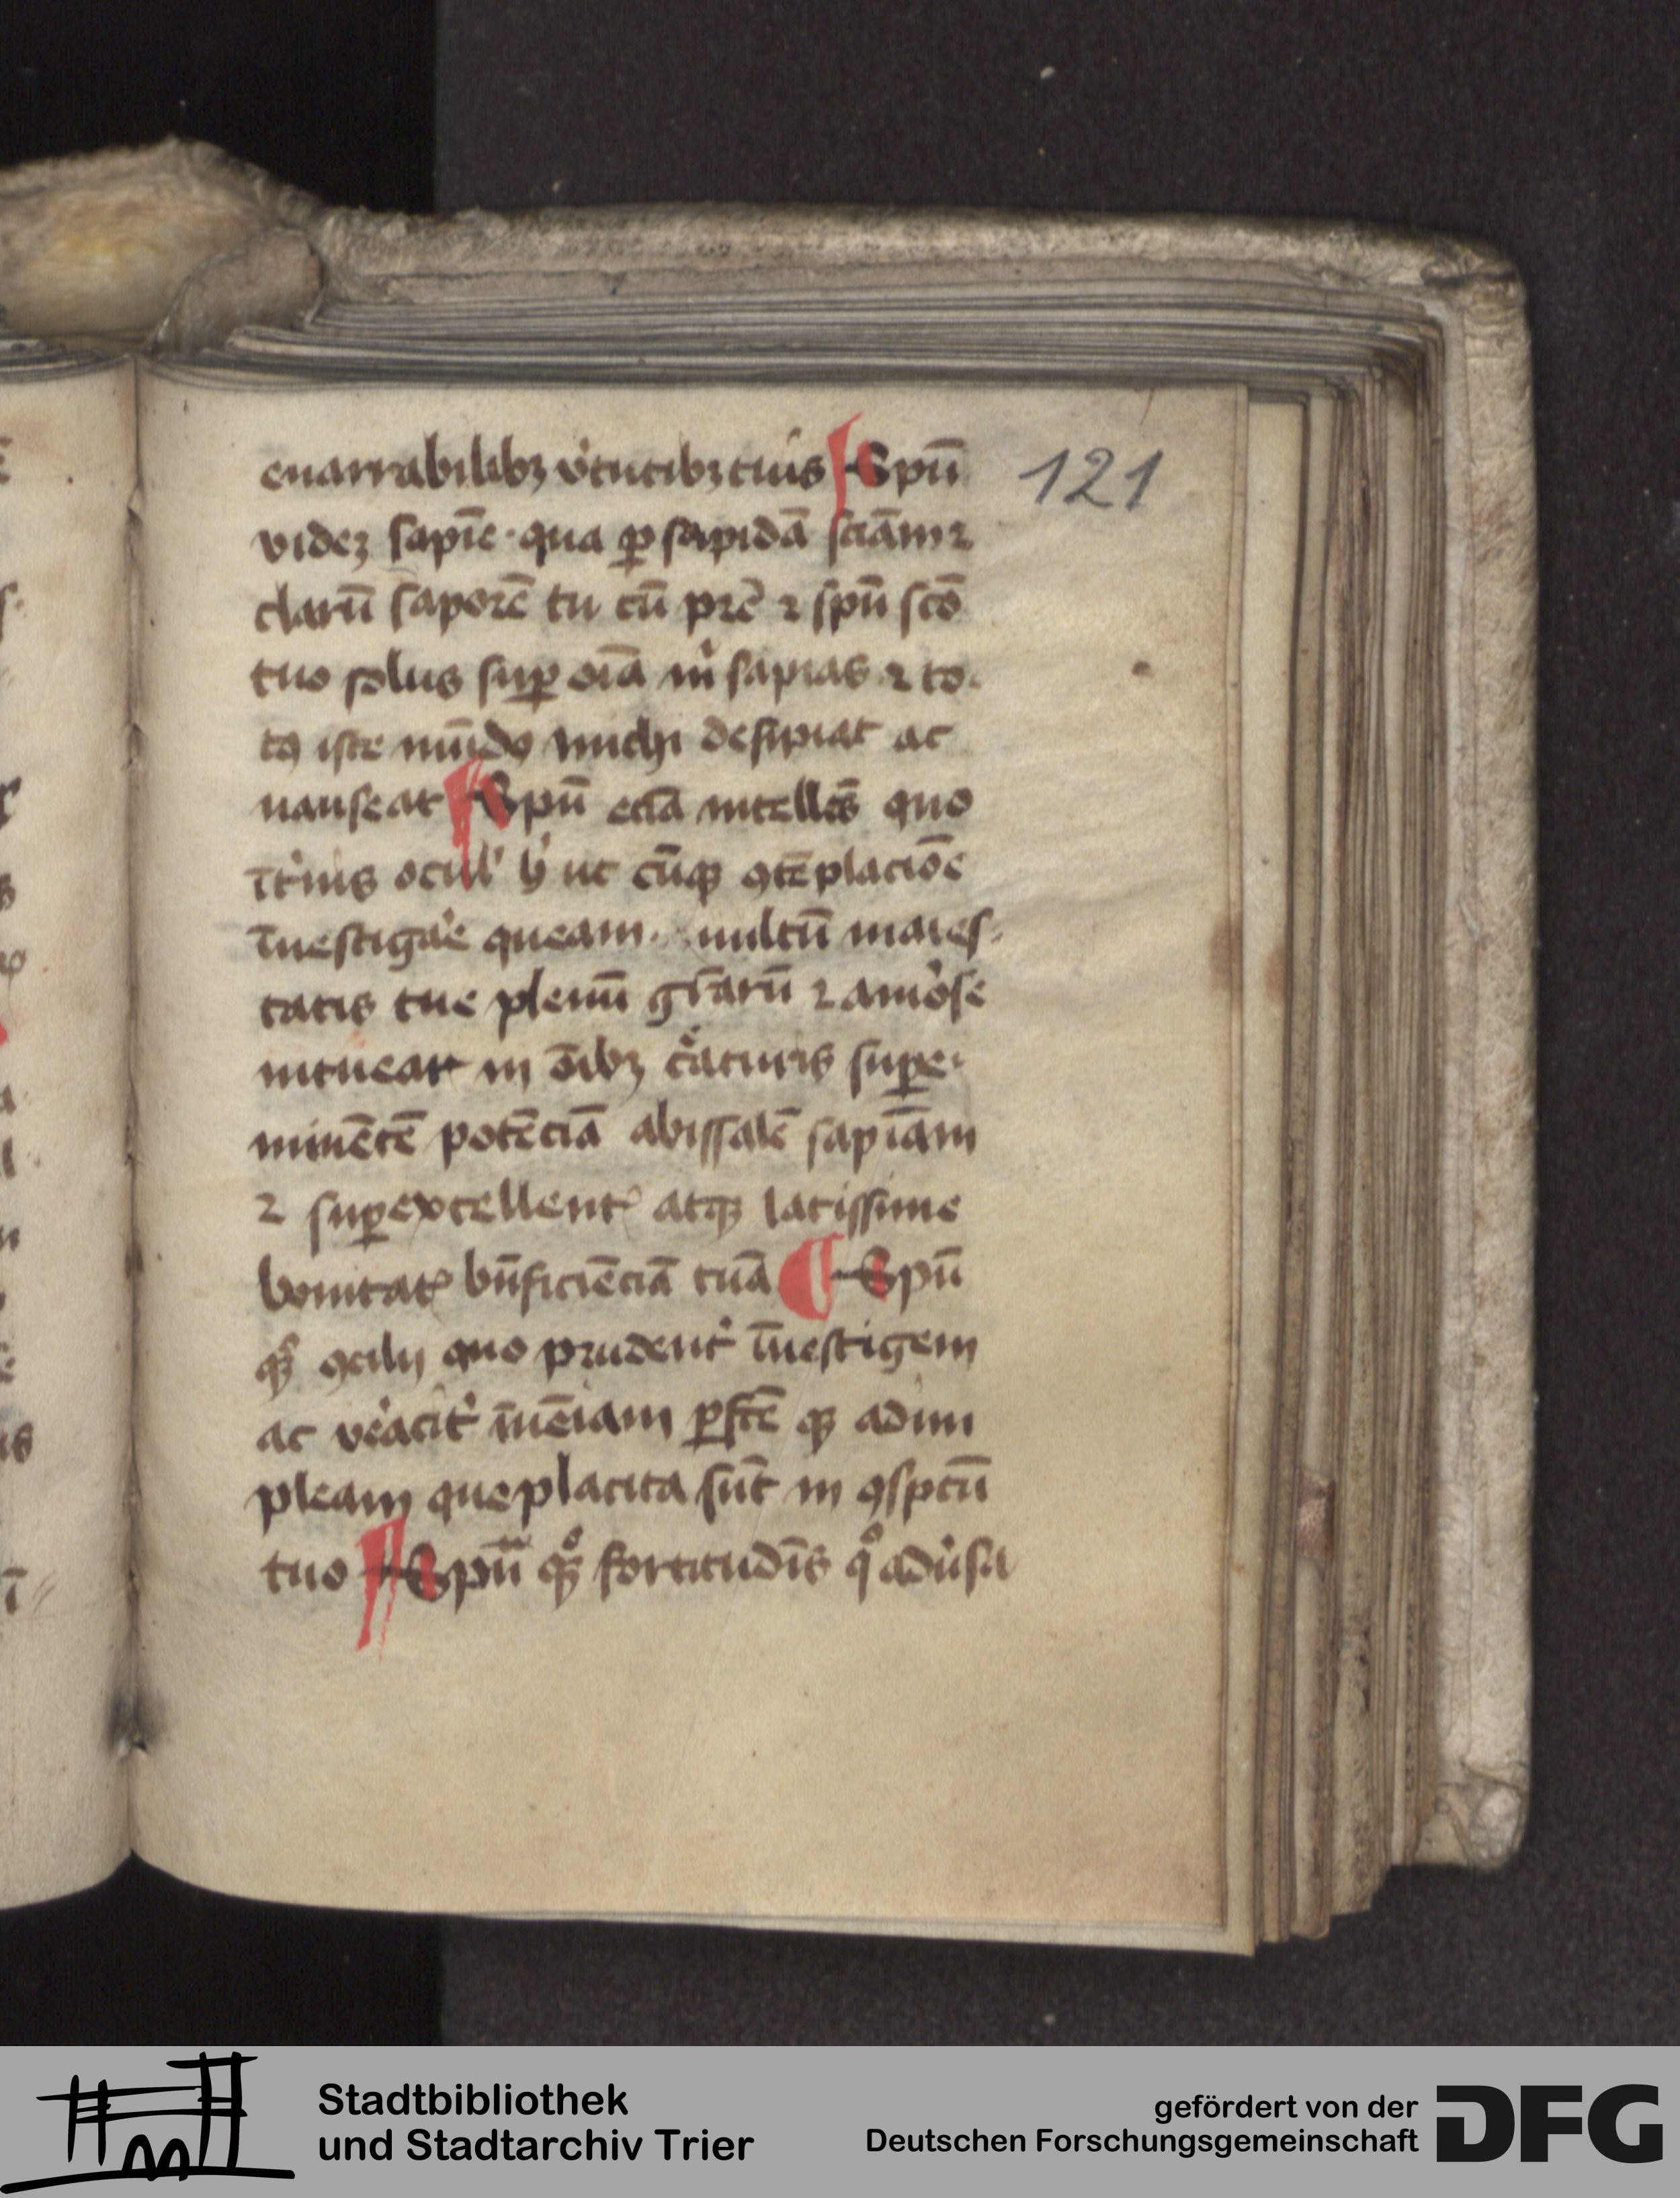 enarrabilibꝫ v'tutibꝫ tuis Spū
videꝫ sapīe · qua ꝑ sapidā sciām ⁊
clarū saporē tu cū pr̄e ⁊ sp̄u sc̄o
tuo solus suꝑ oīa m' sapias ⁊ to-
tꝯ iste mūdꝯ michi desipiat ac
nauseat Spū eciā intellcꝰ quo
īt'nis ocul' ut cūqꝫ ꝯtēplaciōe
īuestigar̓e queam · uultū maies-
tatis tue plenū gr̄arū ⁊ amor̓se
intuear in ōibꝫ c̓aturis suꝑe-
minētē potēciā abissalē sapiām
⁊ suꝑexcellent᷒ atqꝫ latissime
bonitat᷒ bn̄ficiēciā tuā Spū
qꝫ ꝯcilij quo prudent' īuestigem
ac ver̓acit' īuēiam ꝑfc̄e qꝫ adim
pleam que placita sūt in ꝯsptū
tuo Spū qꝫ fortitudīs qͦ adu'sa
121
Stadtbibliothek
und Stadtarchiv Trier
gefördert von der
Deutschen Forschungsgemeinschaft
DFG